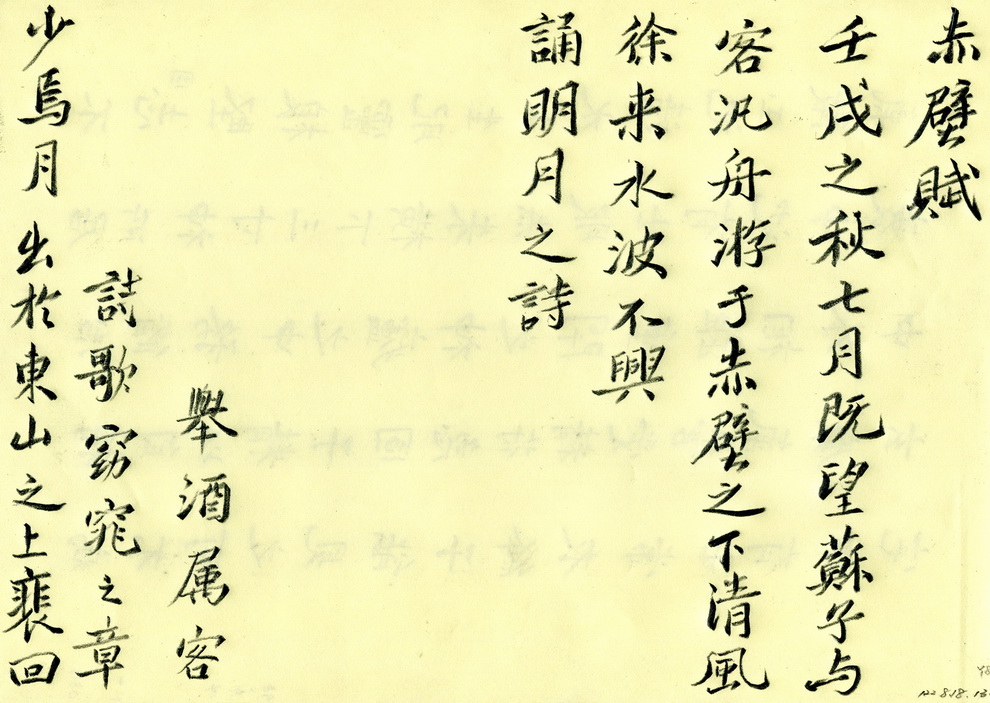 赤壁賦
壬戌之秋七月既望蘇子与
客汎舟游于赤壁之下清風
徐来水波不興
舉酒属客
誦明月之詩
歌窈窕之章
少焉月出於東山之上裴回